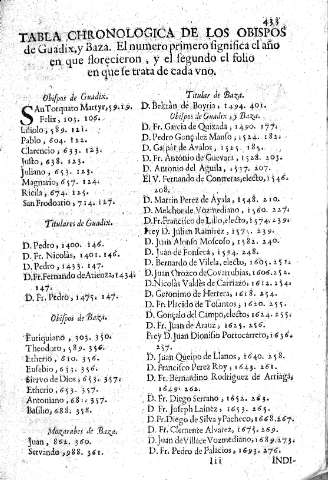 433
TABLA CHRONOLOGICA DE LOS OBISPOS
de Guadix, y Baza. El numero primero significa el año
en que florecieron, y el segundo el folio
en que se trata de cada vno.
Obispos de Guadix.
San Torquato Martyr, 59. 19.
Felix, 303. 106.
Liliolo, 589. 121.
Pablo, 604. 122.
Clarencio, 633. 123.
Justo, 638. 123.
Juliano, 653. 123.
Magnario, 657. 124.
Ricila, 674. 125.
San Frodoario, 714. 127.
Titulares de Guadix.
D. Pedro, 1400. 146.
D. Fr. Nicolás, 1401. 146.
D. Pedro, 1433. 147.
D. Fr. Fernando de Atienza, 1434.
147.
D. Fr. Pedro, 1475. 147.
Obispos de Baza.
Eutiquiano, 303. 350.
Theodoro, 589. 356.
Etherio, 610. 356.
Eusebio, 633. 356.
Siervo de Dios, 653. 357.
Etherio, 653. 357.
Antoniano, 681. 357.
Basilio, 688. 358.
Mozarabes de Baza.
Juan, 862. 360.
Servando, 988. 361.
Titular de Baza.
D. Beltràn de Boyria, 1494. 401.
Obispos de Guadix, y Baza.
D. Fr. Garcia de Quixada, 1490. 177.
D. Pedro Gonçalez Manso, 1524. 182.
D. Gaspàr de Avalos, 1525. 185.
D. Fr. Antonio de Guevara, 1528. 203.
D. Antonio del Aguila, 1537. 207.
El V. Fernando de Contreras, electo, 1546.
208.
D. Martin Perez de Ayala, 1548. 210.
D. Melchor de Vozmediano, 1560. 227.
D. Fr. Francisco de Lillo, electo, 1574. 239.
Frey D. Julian Ramirez, 1557. 239.
D. Juan Alonso Moscoso, 1582. 240.
D. Juan de Fonseca, 1594. 248.
D. Bernardo de Vilela, electo, 1605. 251.
D. Juan Orozco de Covarrubias, 1606. 252.
D. Nicolàs Valdès de Carriazo, 1612. 254.
D. Geronimo de Herrera, 1618. 254.
D. Fr. Placido de Tosantos, 1620. 255.
D. Gonçalo del Campo, electo, 1624. 255.
D. Fr. Juan de Arauz, 1625. 256.
Frey D. Juan Dionisio Portocarrero, 1636.
257.
D. Juan Queipo de Llanos, 1640. 258.
D. Francisco Perez Roy, 1643. 261.
D. Fr. Bernardino Rodriguez de Arriaga,
1649. 262.
D. Fr. Diego Serrano, 1652. 263.
D. Fr. Joseph Lainèz, 1653. 263.
D. Fr. Diego de Silva y Pacheco, 1668. 267.
D. Fr. Clemente Alvarez, 1675. 269.
D. Juan de Villace Vozmediano, 1689. 273.
D. Fr. Pedro de Palacios, 1693. 276.
Iii INDI-